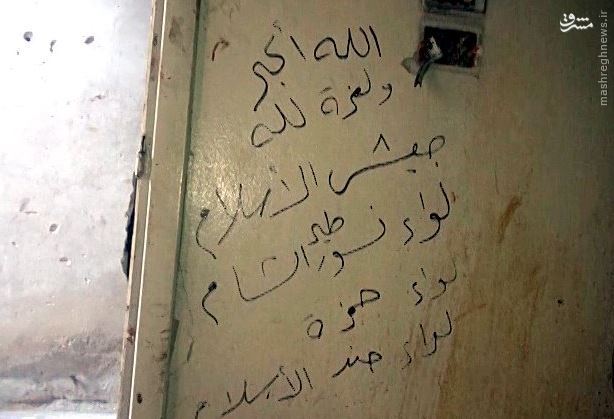 الله أكبر
ولعزة لله
جيش الأسلام
لواء نسور الشام
لواء حمزة
لواء جند الأسلام
مشرق
mashreghnews.ir